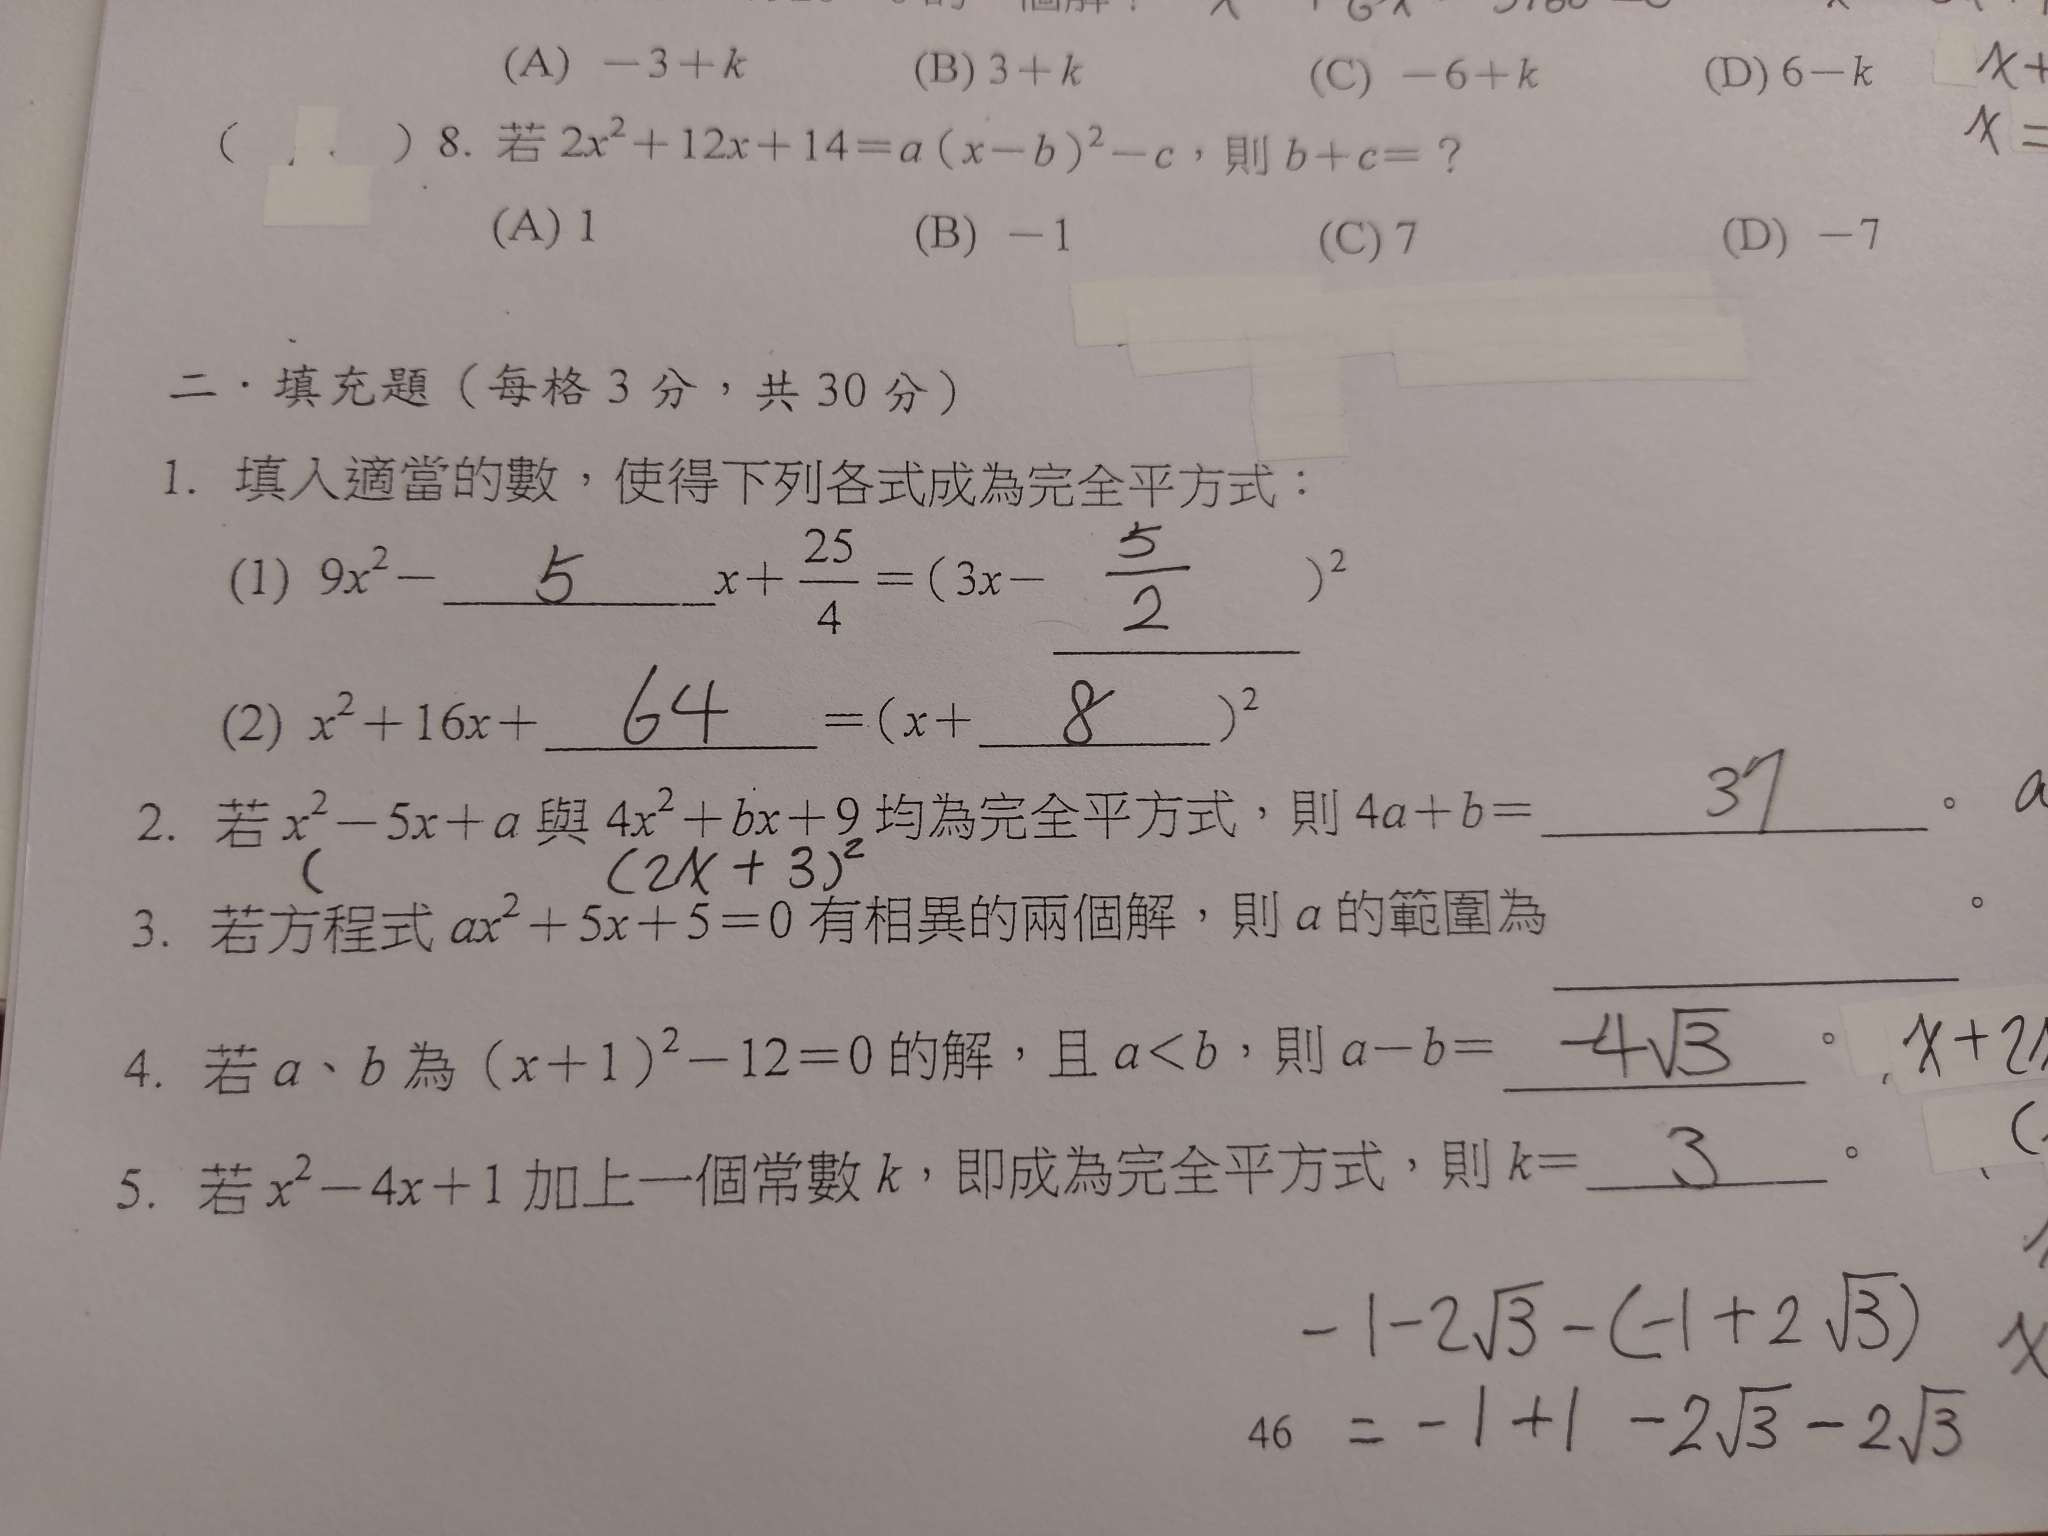 (A) －3＋k (B) 3＋k (C) －6＋k (D) 6－k x+
( ) 8. 若 2x²＋12x＋14＝a(x－b)²－c，則 b＋c＝？ x=
(A) 1 (B) －1 (C) 7 (D) －7
二．填充題（每格 3 分，共 30 分）
1. 填入適當的數，使得下列各式成為完全平方式：
(1) 9x²－ 5 x＋25/4＝(3x－ 5/2 )²
(2) x²＋16x＋ 64 ＝(x＋ 8 )²
2. 若 x²－5x＋a 與 4x²＋bx＋9 均為完全平方式，則 4a＋b＝ 37 。 a
( (2x + 3)²
3. 若方程式 ax²＋5x＋5＝0 有相異的兩個解，則 a 的範圍為 。
4. 若 a、b 為（x＋1）²－12＝0 的解，且 a＜b，則 a－b＝ -4√3 。 x+2
5. 若 x²－4x＋1 加上一個常數 k，即成為完全平方式，則 k＝ 3 。 (
-1-2√3-(-1+2√3) x
46 = -1+1 -2√3-2√3